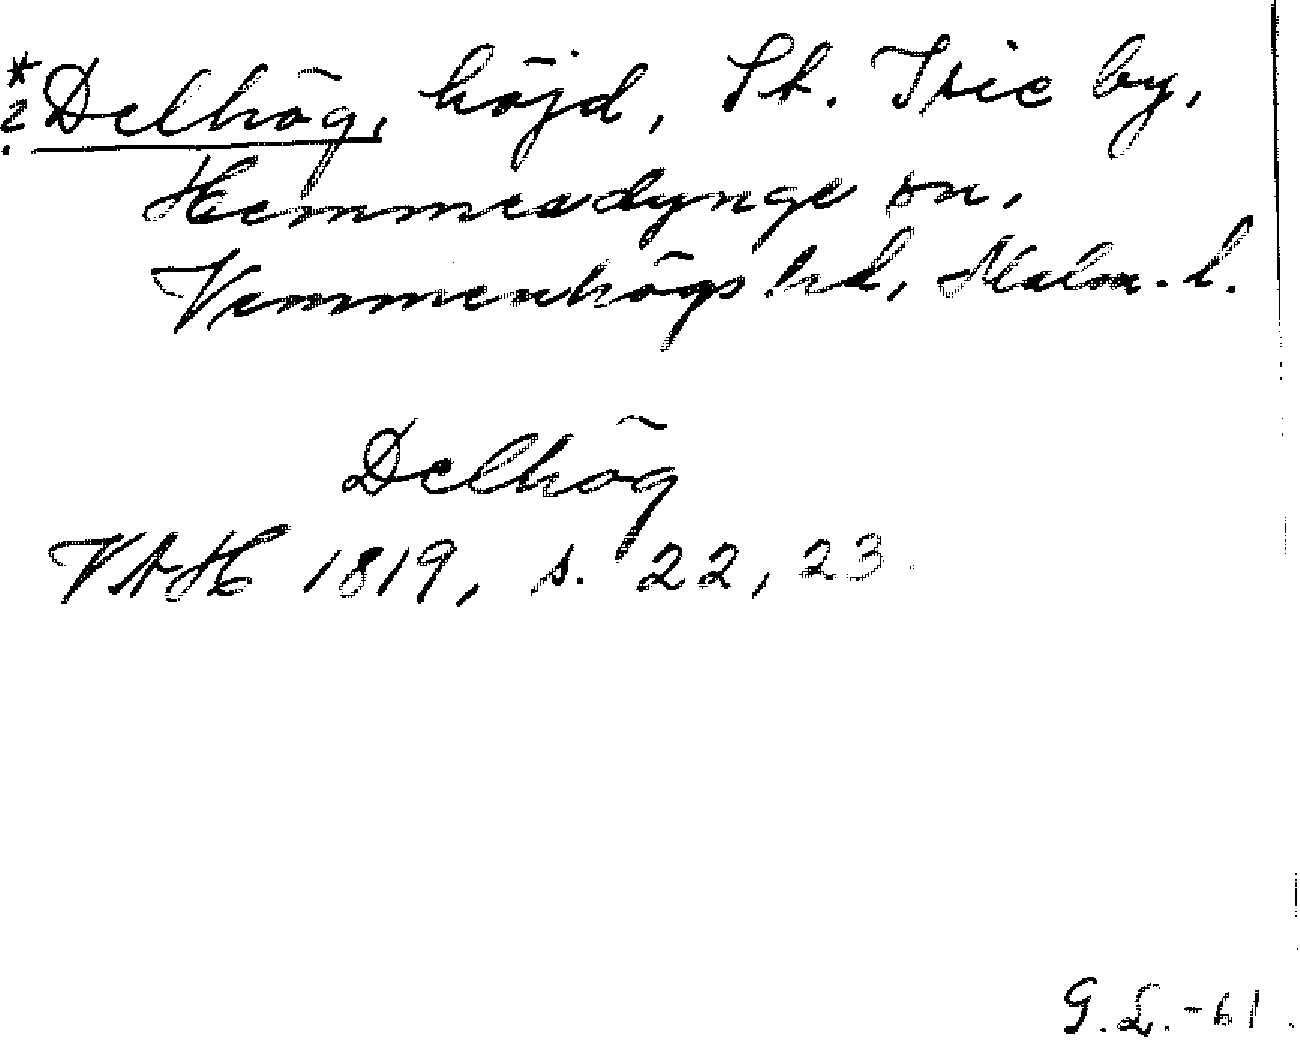 *
? Delhög, höjd, St. Isie by,
Hemmesdynge sn,
Vemmenhögs hd, Malm. l.
Delhög
VAH 1819, s. 22, 23
G.L.-61.